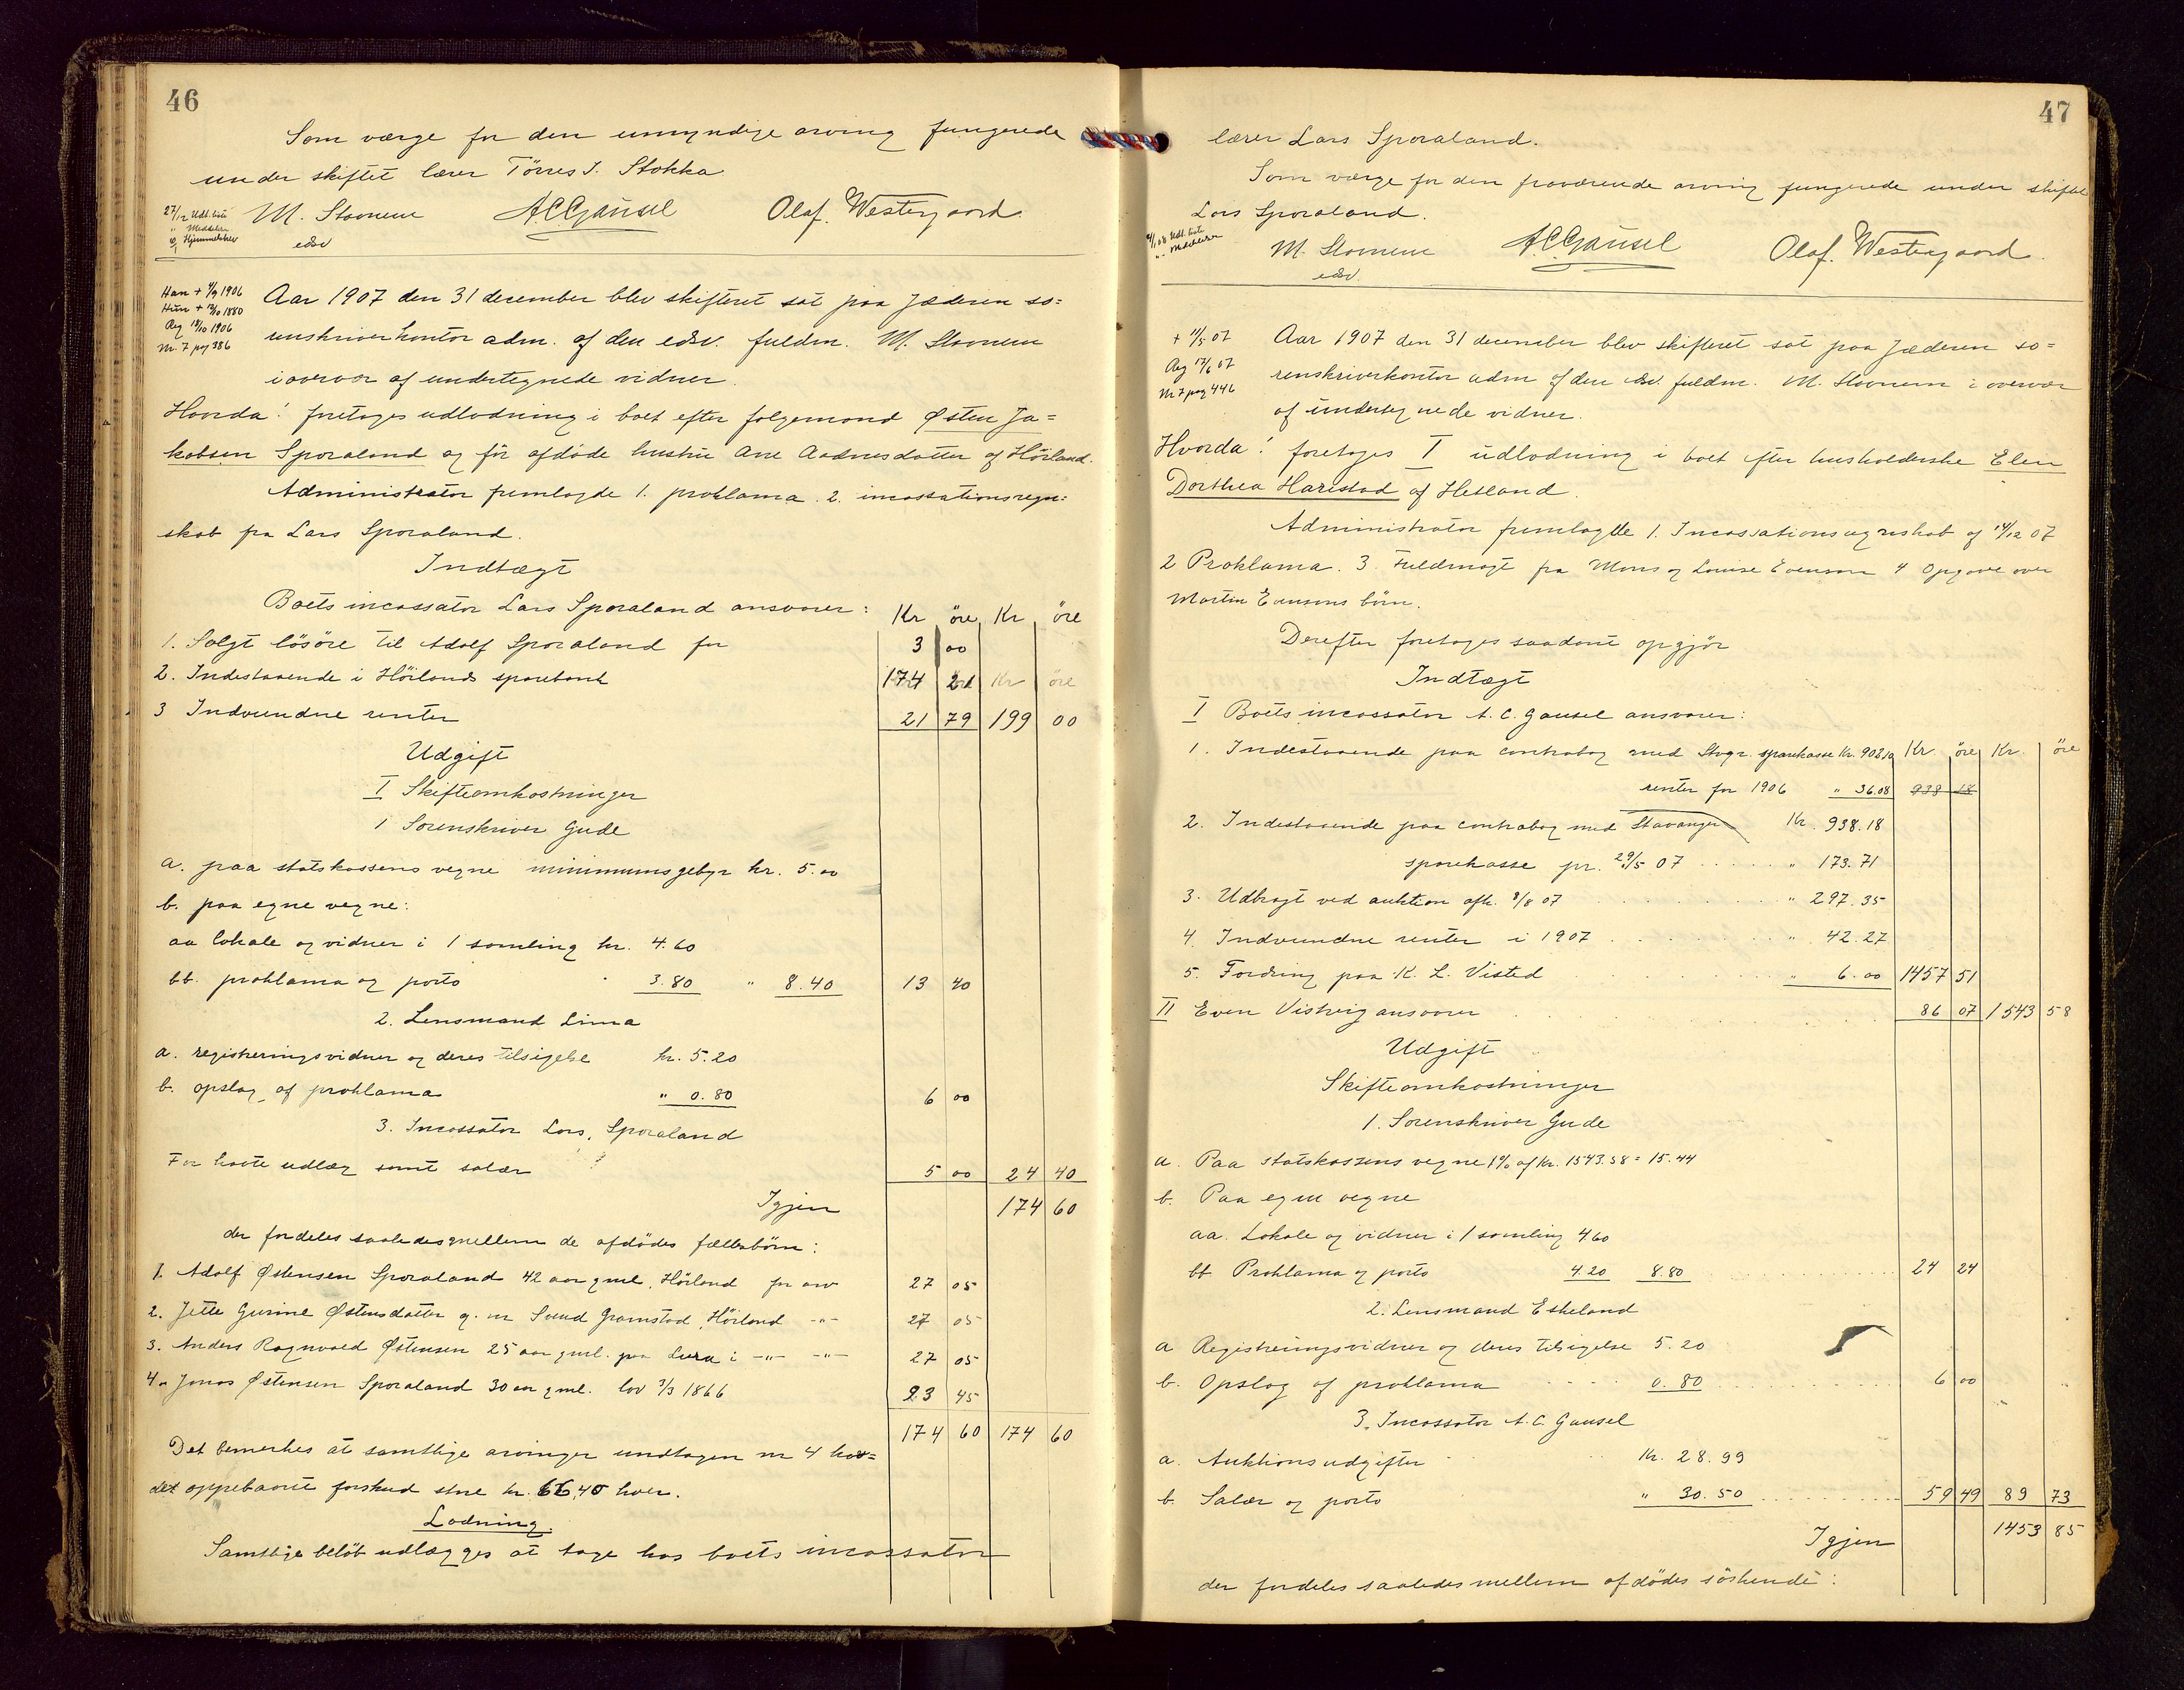 46
Som værge for den umyndige arving fungerede
under skiftet lærer Törres S. Stokka
27/12 Udl. liste
" Meddelse
Hjemmelsbrev
M. Stornem A.C. Gausel Olaf. Westergaard
edsv
Han + 4/9 1906
Hun + 13/10 1880
Reg 18/10 1906
Nr. 7 pag 386
Aar 1907 den 31 december blev skifteret sat paa Jæderen so=
renskriverkontor adm. af den edsv. fuldm. M. Stornem
i overvær af undertegnede vidner.
Hvorda! foretoges udlodning i boet efter følgemand Østen Ja=
kobsen Sporaland og för afdöde hustru Ane Aadnesdatter af Höiland.
Administrator fremlagde 1. proklama. 2. incassationsregn=
skab fra Lars Sporaland.
Indtægt
Boets incassator Lars Sporaland ansvarer: Kr öre Kr öre
1. Solgt lösöre til Adolf Sporaland for 3 00
2. Indestaaende i Höilands sparebank 174 21 Kr öre
3 Indvundne renter 21 79 199 00
Udgift
I Skifteomkostninger
1 Sorenskriver Gude
a. paa statskassens vegne minimumsgebyr kr. 5.00
b. paa egne vegne:
aa Lokale og vidner i 1 samling kr. 4.60
bb. proklama og porto " 3.80 " 8.40 13 40
2. Lensmand Lima
a. registreringsvidner og deres tilsigelse kr. 5.20
b. opslag af proklama " 0.80 6 00
3. Incassator Lars Sporaland
For havte udlæg samt salær 5 00 24 40
Igjen 174 60
der fordeles saaledes mellem de afdödes fællesbörn:
1. Adolf Østensen Sporaland 42 aar gml. Höiland for arv 27 05
2. Jette Gurine Østensdatter g. m Svend Gramstad, Höiland -"- 27 05
3. Anders Ragnvald Østensen 25 aar gml. paa Lura i -"- -"- 27 05
4. Jonas Østensen Sporaland 30 aar gml. lov 3/3 1866 93 45
174 60 174 60
Det bemerkes at samtlige arvinger undtagen nr 4 hav=
det oppebaaret forskud stort kr. 66,40 hver.
Lodning.
Samtlige belöb udlægges at tage hos boets incassator
47
lærer Lars Sporaland.
Som værge for den fraværende arving fungerede under skiftet
Lars Sporaland.
Udl. liste
" Meddelelser
M. Stornem A.C. Gausel Olaf. Westergaard.
edsv.
+ 11/5 07
Reg 17/6 07
Nr 7 pag 446
Aar 1907 den 31 december blev skifteret sat paa Jæderen so=
renskriverkontor adm af den edsv. fuldm. M. Stornem i overvær
af undertegnede vidner.
Hvorda! foretoges I udlodning i boet efter husholderske Elen
Dorthea Harestad af Hetland.
Administrator fremlagde 1. Incassationsregnskab af 14/12 07
2 Proklama. 3. Fuldmagt fra Mons og Louise Evensen 4 Opgave over
Martin Evensens börn.
Derefter foretoges saadant opgjör
Indtægt
I Boets incassator A. C. Gausel ansvarer:
1. Indestaaende paa contrabog med Stvgr. sparekasse Kr. 902.10 Kr öre Kr. öre
renter for 1906 " 36.08 938 18
2. Indestaaende paa contrabog med Stavanger Kr. 938.18
sparekasse pr. 29/5 07 " 173.71
3. Udbragt ved auktion afh. 8/8 07 " 297.35
4. Indvundne renter i 1907 " 42.27
5. Fordring paa K. L. Visted " 6.00 1457 51
II Even Vistvig ansvarer 86 07 1543 58
Udgift
Skifteomkostninger
1. Sorenskriver Gude
a. Paa statskassens vegne 1% af kr. 1543.58 = 15.44
b. Paa egne vegne
aa. Lokale og vidner i 1 samling 4 60
bb Proklama og porto 4.20 8.80 24 24
2. Lensmand Eskeland
a Registreringsvidner og deres tilsigelse 5.20
b. Opslag af proklama 0.80 6 00
3. Incassator A. C. Gausel
a. Auktionsudgifter Kr. 28.99
b. Salær og porto " 30.50 59 49 89 73
Igjen 1453 85
der fordeles saaledes mellem afdödes söskende: